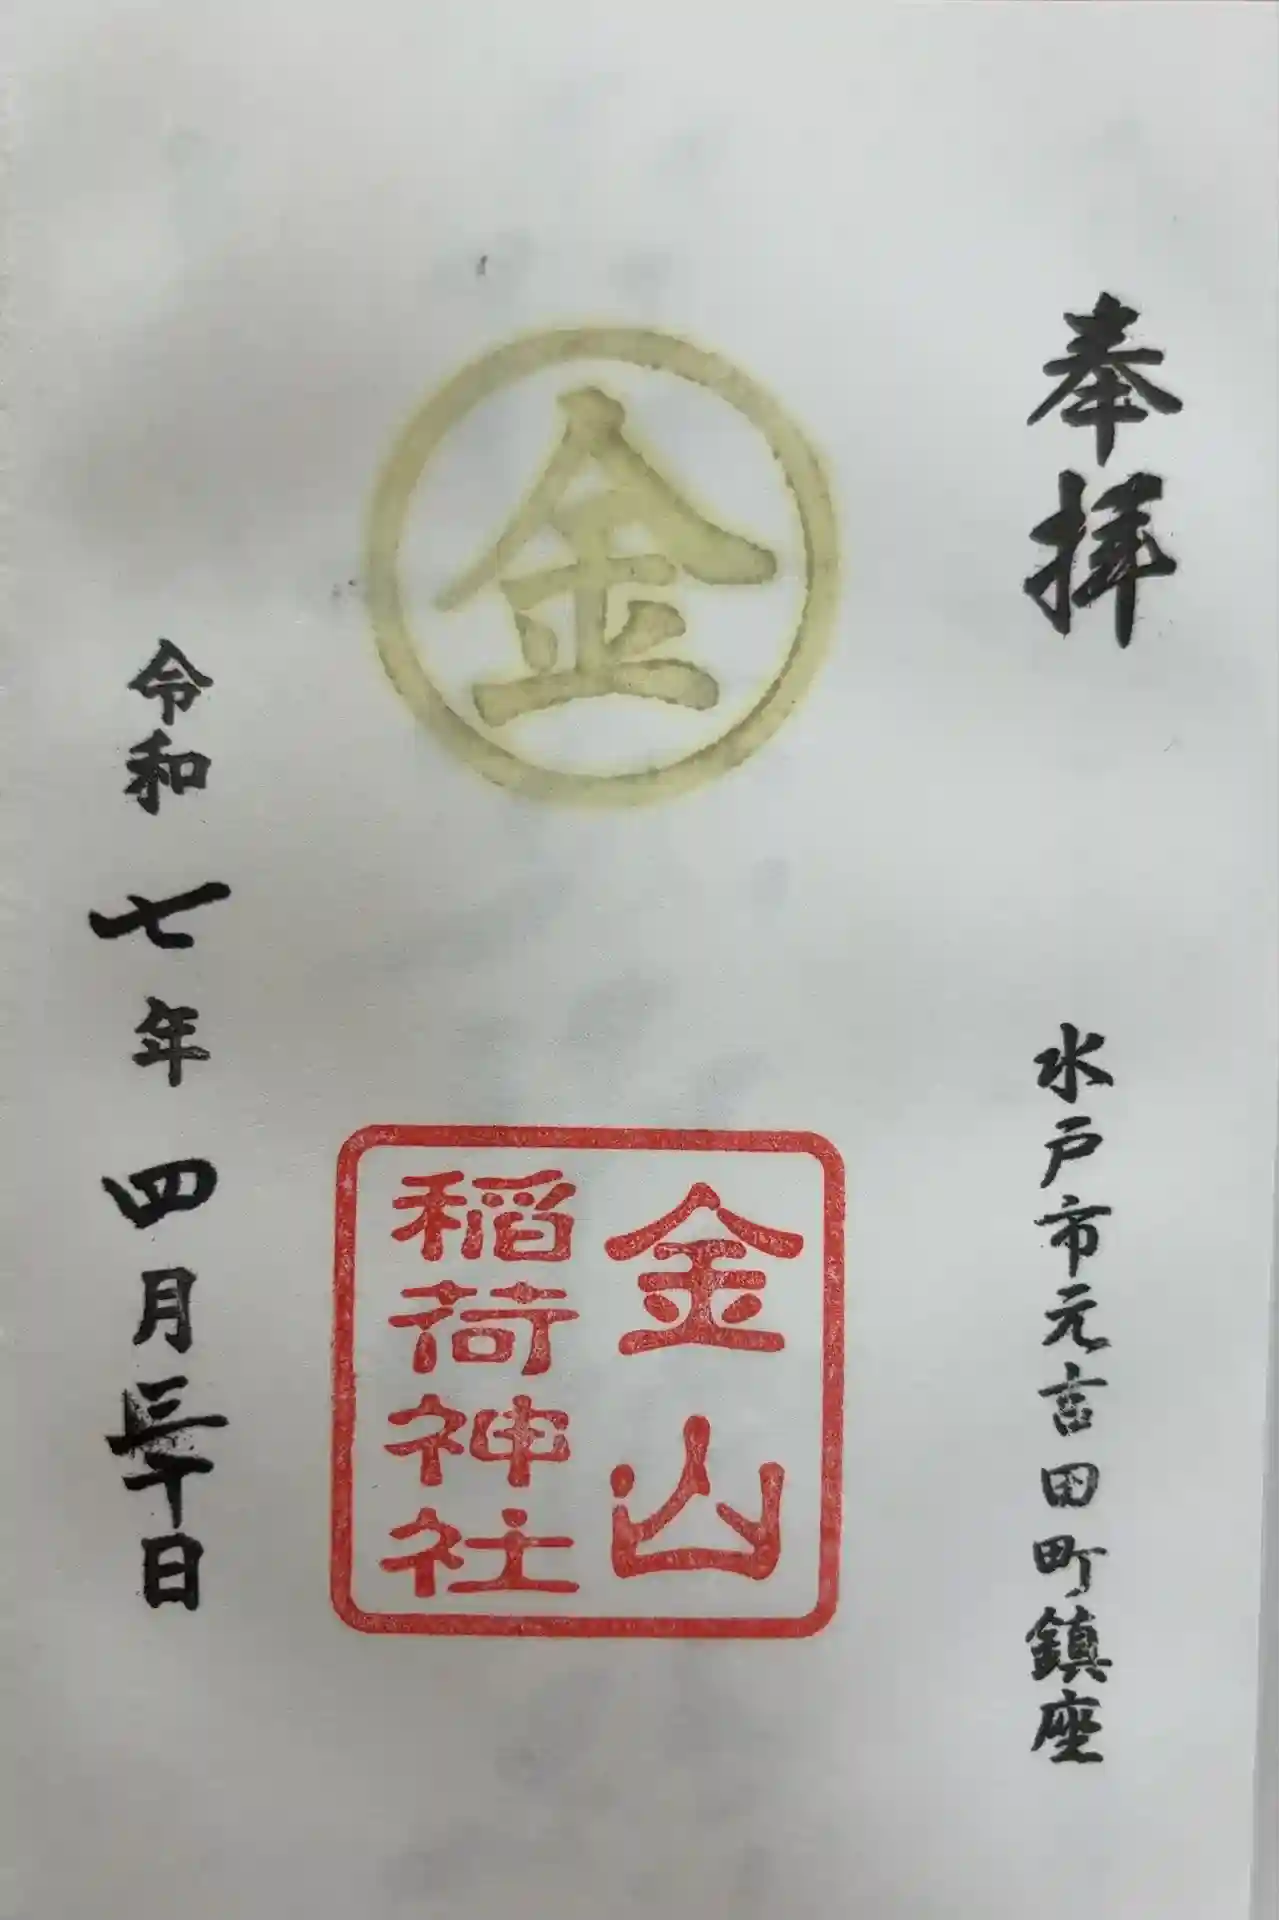 奉拝
水戸市元吉田町鎮座
金
金山
稲荷神社
令和七年四月三十日